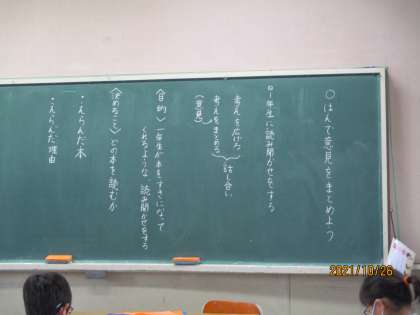 ○はんで意見をまとめよう
1年生に読み聞かせをする
考えを広げる
考えをまとめる
話し合い
(意見)
〈目的〉一年生が本をすきになって
くれるような読み聞かせをする
〈決めること〉どの本を読むか
・えらんだ本
・えらんだ理由
2021/10/26